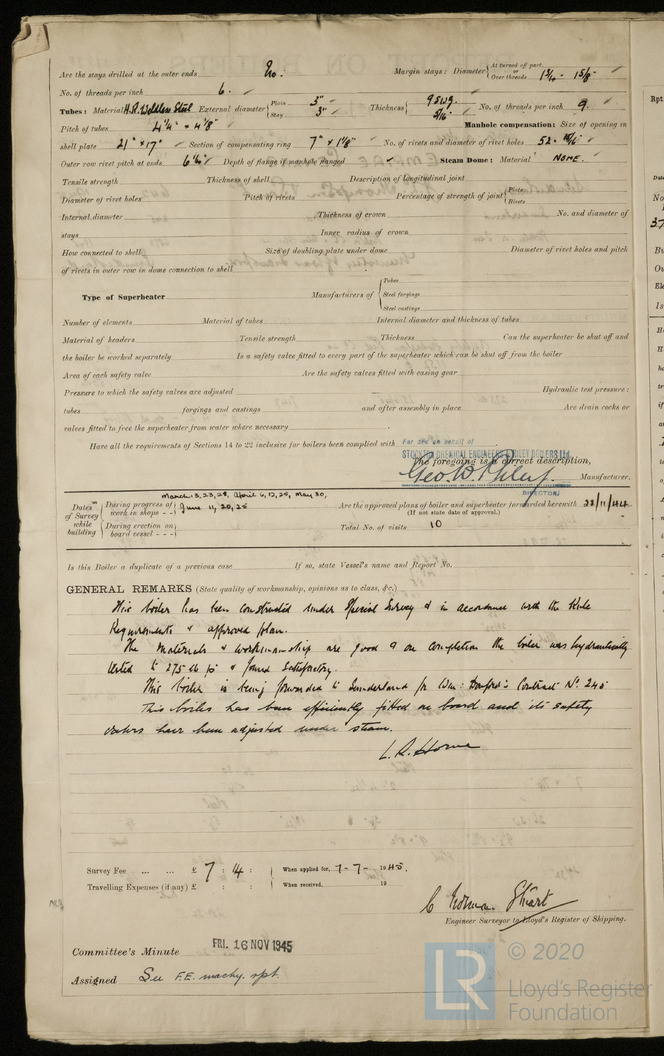 Are the stays drilled at the outer ends No. Margin stays: Diameter { At turned off part, or Over threads 1 5/8"
No. of threads per inch 6.
Tubes: Material H.R. Weldless Steel External diameter { Plain 3" Stay 3" Thickness { 9 SWG. 5/16" No. of threads per inch 9.
Pitch of tubes 4 1/4" × 4 1/8" Manhole compensation: Size of opening in
shell plate 21" × 17" Section of compensating ring 7" × 1 1/8" No. of rivets and diameter of rivet holes 52 -
Outer row rivet pitch at ends 6 1/4" Depth of flange if manhole flanged Steam Dome: Material NONE.
Tensile strength Thickness of shell Description of longitudinal joint
Diameter of rivet holes Pitch of rivets Percentage of strength of joint { Plate Rivets
Internal diameter Thickness of crown No. and diameter of
stays Inner radius of crown
How connected to shell Size of doubling plate under dome Diameter of rivet holes and pitch
of rivets in outer row in dome connection to shell
Type of Superheater Manufacturers of { Tubes Steel forgings Steel castings
Number of elements Material of tubes Internal diameter and thickness of tubes
Material of headers Tensile strength Thickness Can the superheater be shut off and
the boiler be worked separately Is a safety valve fitted to every part of the superheater which can be shut off from the boiler
Area of each safety valve Are the safety valves fitted with easing gear
Pressure to which the safety valves are adjusted Hydraulic test pressure:
tubes forgings and castings and after assembly in place Are drain cocks or
valves fitted to free the superheater from water where necessary
Have all the requirements of Sections 14 to 22 inclusive for boilers been complied with
For and on behalf of
STOCKTON CHEMICAL ENGINEERS & RILEY BOILERS LTD.
The foregoing is a correct description,
Geo. W. Riley Manufacturer.
DIRECTOR
Dates of Survey while building { During progress of work in shops - - March 8, 23, 29, April 6, 12, 25, May 30, June 11, 20, 25
During erection on board vessel - - -
Are the approved plans of boiler and superheater forwarded herewith 22/11/44
(If not state date of approval.)
Total No. of visits 10
Is this Boiler a duplicate of a previous case If so, state Vessel's name and Report No.
GENERAL REMARKS (State quality of workmanship, opinions as to class, &c.)
This boiler has been constructed under Special Survey & in accordance with the Rule
Requirements & approved plan.
The materials & workmanship are good & on completion the boiler was hydraulically
tested to 275 lb and found satisfactory.
This boiler is being forwarded to Sunderland for Wm: Doxford's Contract No 245
This boiler has been efficiently fitted on board and its safety
valves have been adjusted under steam.
L. R. Horne
Survey Fee ... ... £ 7 : 4 : When applied for, 7-7- 1945.
Travelling Expenses (if any) £ : : When received, 19
C Norman Stuart
Engineer Surveyor to Lloyd's Register of Shipping.
Committee's Minute FRI. 16 NOV 1945
Assigned See F.E. machy. rpt.
© 2020
LR Lloyd's Register
Foundation